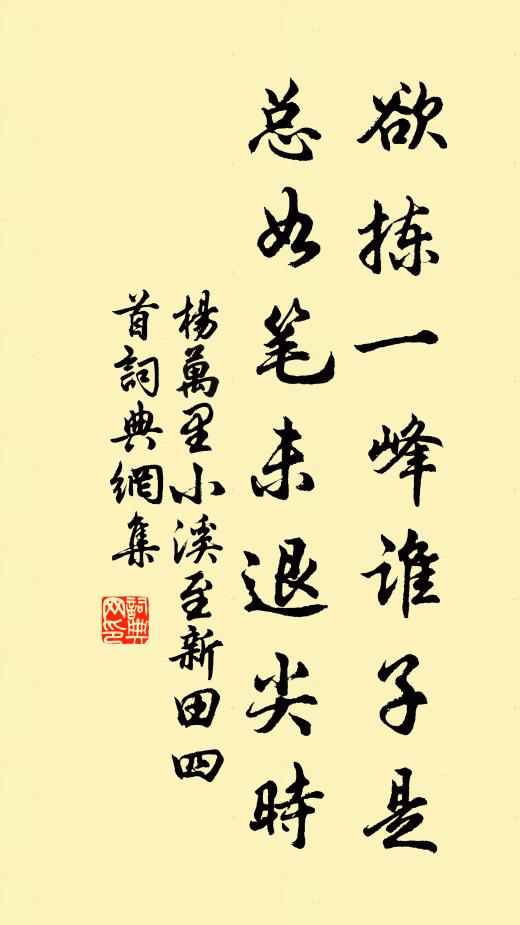 欲拣一峰谁子是
总如笔未退尖時
楊萬里小溪至新田四
首詞典網集
詞典
网印